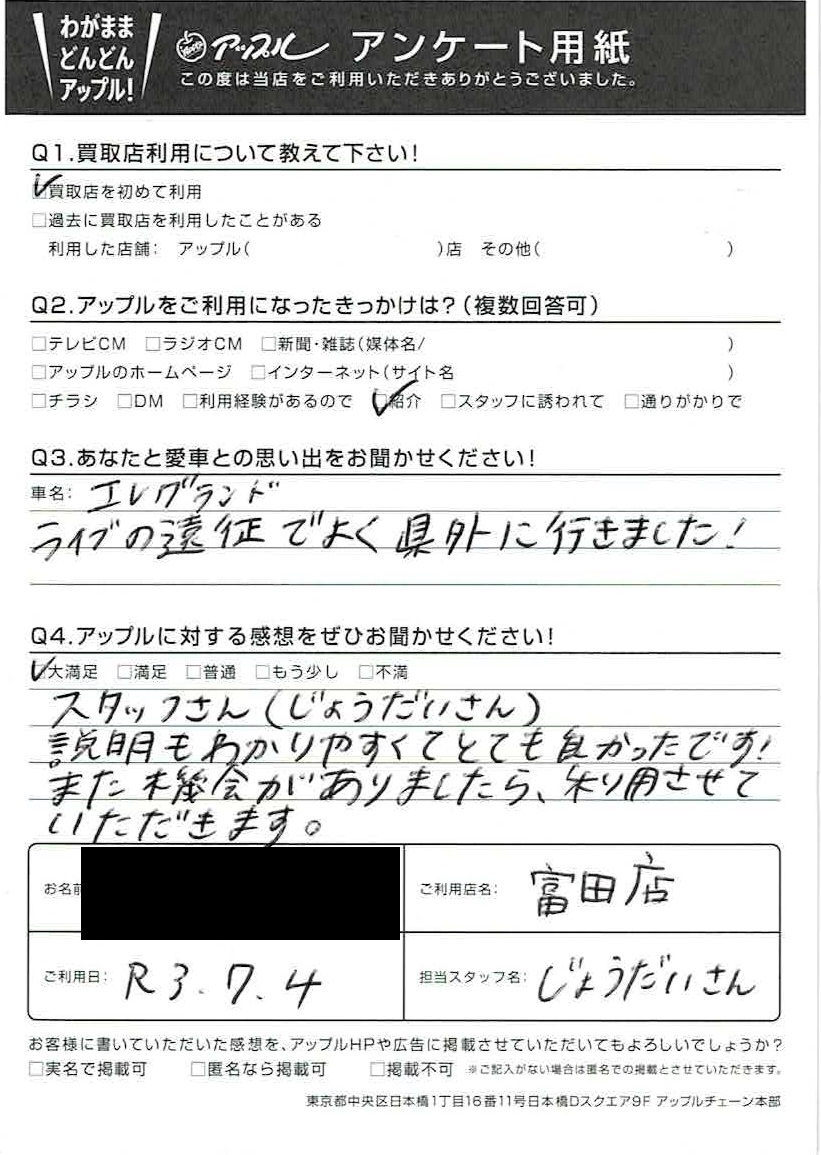 わがまま
どんどん
アップル!
アップル アンケート用紙
この度は当店をご利用いただきありがとうございました。
Q1.買取店利用について教えて下さい!
☑買取店を初めて利用
□過去に買取店を利用したことがある
利用した店舗: アップル( )店 その他( )
Q2.アップルをご利用になったきっかけは?(複数回答可)
□テレビCM □ラジオCM □新聞・雑誌(媒体名/ )
□アップルのホームページ □インターネット(サイト名 )
□チラシ □DM □利用経験があるので ☑紹介 □スタッフに誘われて □通りがかりで
Q3.あなたと愛車との思い出をお聞かせください!
車名: エレグランド
ライブの遠征でよく県外に行きました!
Q4.アップルに対する感想をぜひお聞かせください!
☑大満足 □満足 □普通 □もう少し □不満
スタッフさん(じょうだいさん)
説明もわかりやすくてとても良かったです!
また機会がありましたら、利用させて
いただきます。
お名前
ご利用店名: 富田店
ご利用日: R3.7.4
担当スタッフ名: じょうだいさん
お客様に書いていただいた感想を、アップルHPや広告に掲載させていただいてもよろしいでしょうか?
□実名で掲載可 □匿名なら掲載可 □掲載不可 ※ご記入がない場合は匿名での掲載とさせていただきます。
東京都中央区日本橋1丁目16番11号日本橋Dスクエア9F アップルチェーン本部